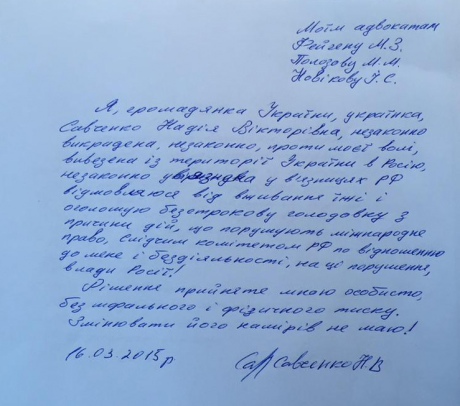 Моїм адвокатам
Фейгену М.З.
Полозову М.М.
Новікову І.С.
Я, громадянка України, українка,
Савченко Надія Вікторівна, незаконно
викрадена, незаконно, проти моєї волі,
вивезена із території України в Росію,
незаконно ув'язнена у в'язницях РФ
відмовляюся від вживання їжі і
оголошую безстрокову голодовку з
причини дій, що порушують міжнародне
право, Слідчим комітетом РФ по відношенню
до мене і бездіяльності, на ці порушення,
влади Росії!
Рішення прийняте мною особисто,
без морального і фізичного тиску.
Змінювати його намірів не маю!
16.03.2015р Савченко Н.В